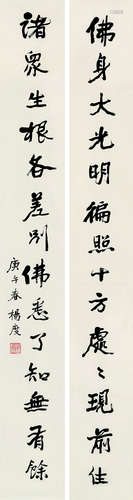 佛身大光明徧照十方處〻現前住
諸衆生根各差別佛悉了知無有餘
庚午春楊度